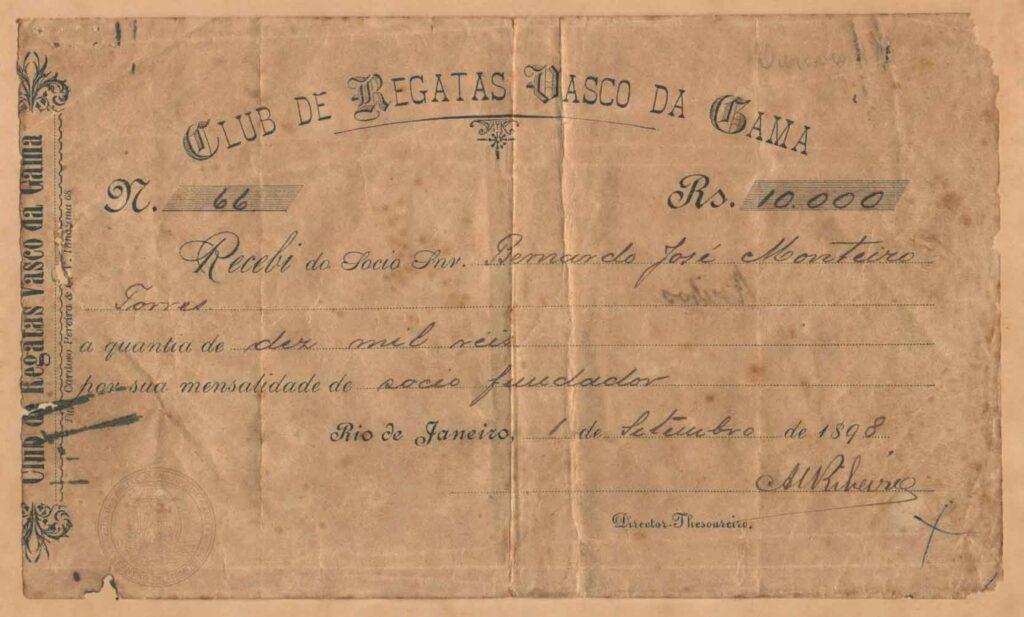 CLUB DE REGATAS VASCO DA GAMA
N. 66
Rs. 10.000
Recebi do Socio Snr. Bernardo José Monteiro
Torres
a quantia de dez mil réis
por sua mensalidade de socio fundador
Rio de Janeiro, 1 de Setembro de 1898
Ribeiro
Director-Thesoureiro.
Club de Regatas Vasco da Gama
Cardoso Pereira &